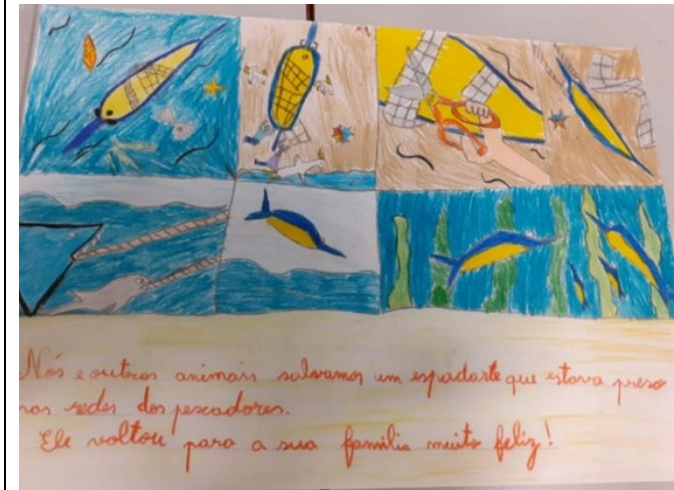 Nós e outros animais salvamos um espadarte que estava preso
nas redes dos pescadores.
Ele voltou para a sua família muito feliz!